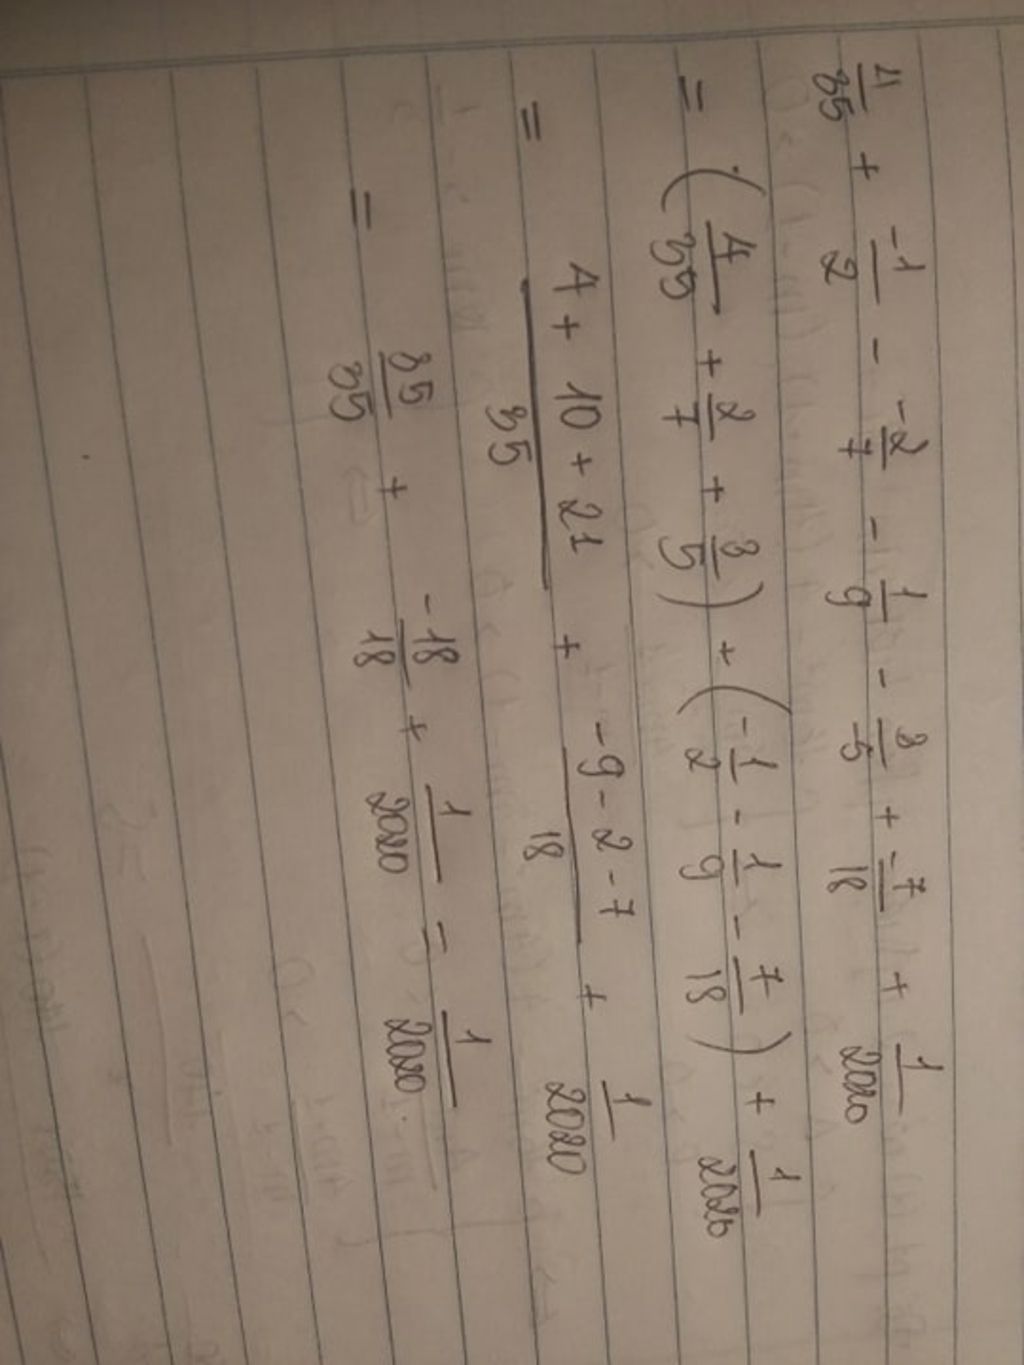 4/35 + -1/2 - -2/7 - 1/9 - 3/-5 + -7/18 + 1/2020
= (4/35 + 2/7 + 3/5) + (-1/2 - 1/9 - 7/18) + 1/2020
= 4 + 10 + 21/35 + -9 - 2 - 7/18 + 1/2020
= 35/35 + -18/18 + 1/2020 = 1/2020.